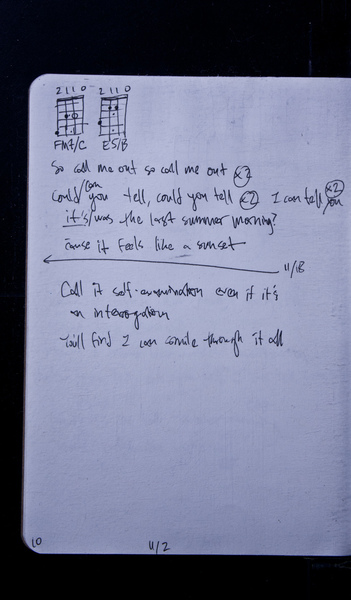 2 1 1 0 2 1 1 0
FM7/C E5/B
So call me out so call me out x2
Could/can you tell, could you tell x2 I can tell you x2
it's/was the last summer morning?
'cause it feels like a sunset
11/18
Call it self-examination even if it's
an interrogation
You'll find I can smile through it all
10 11/2